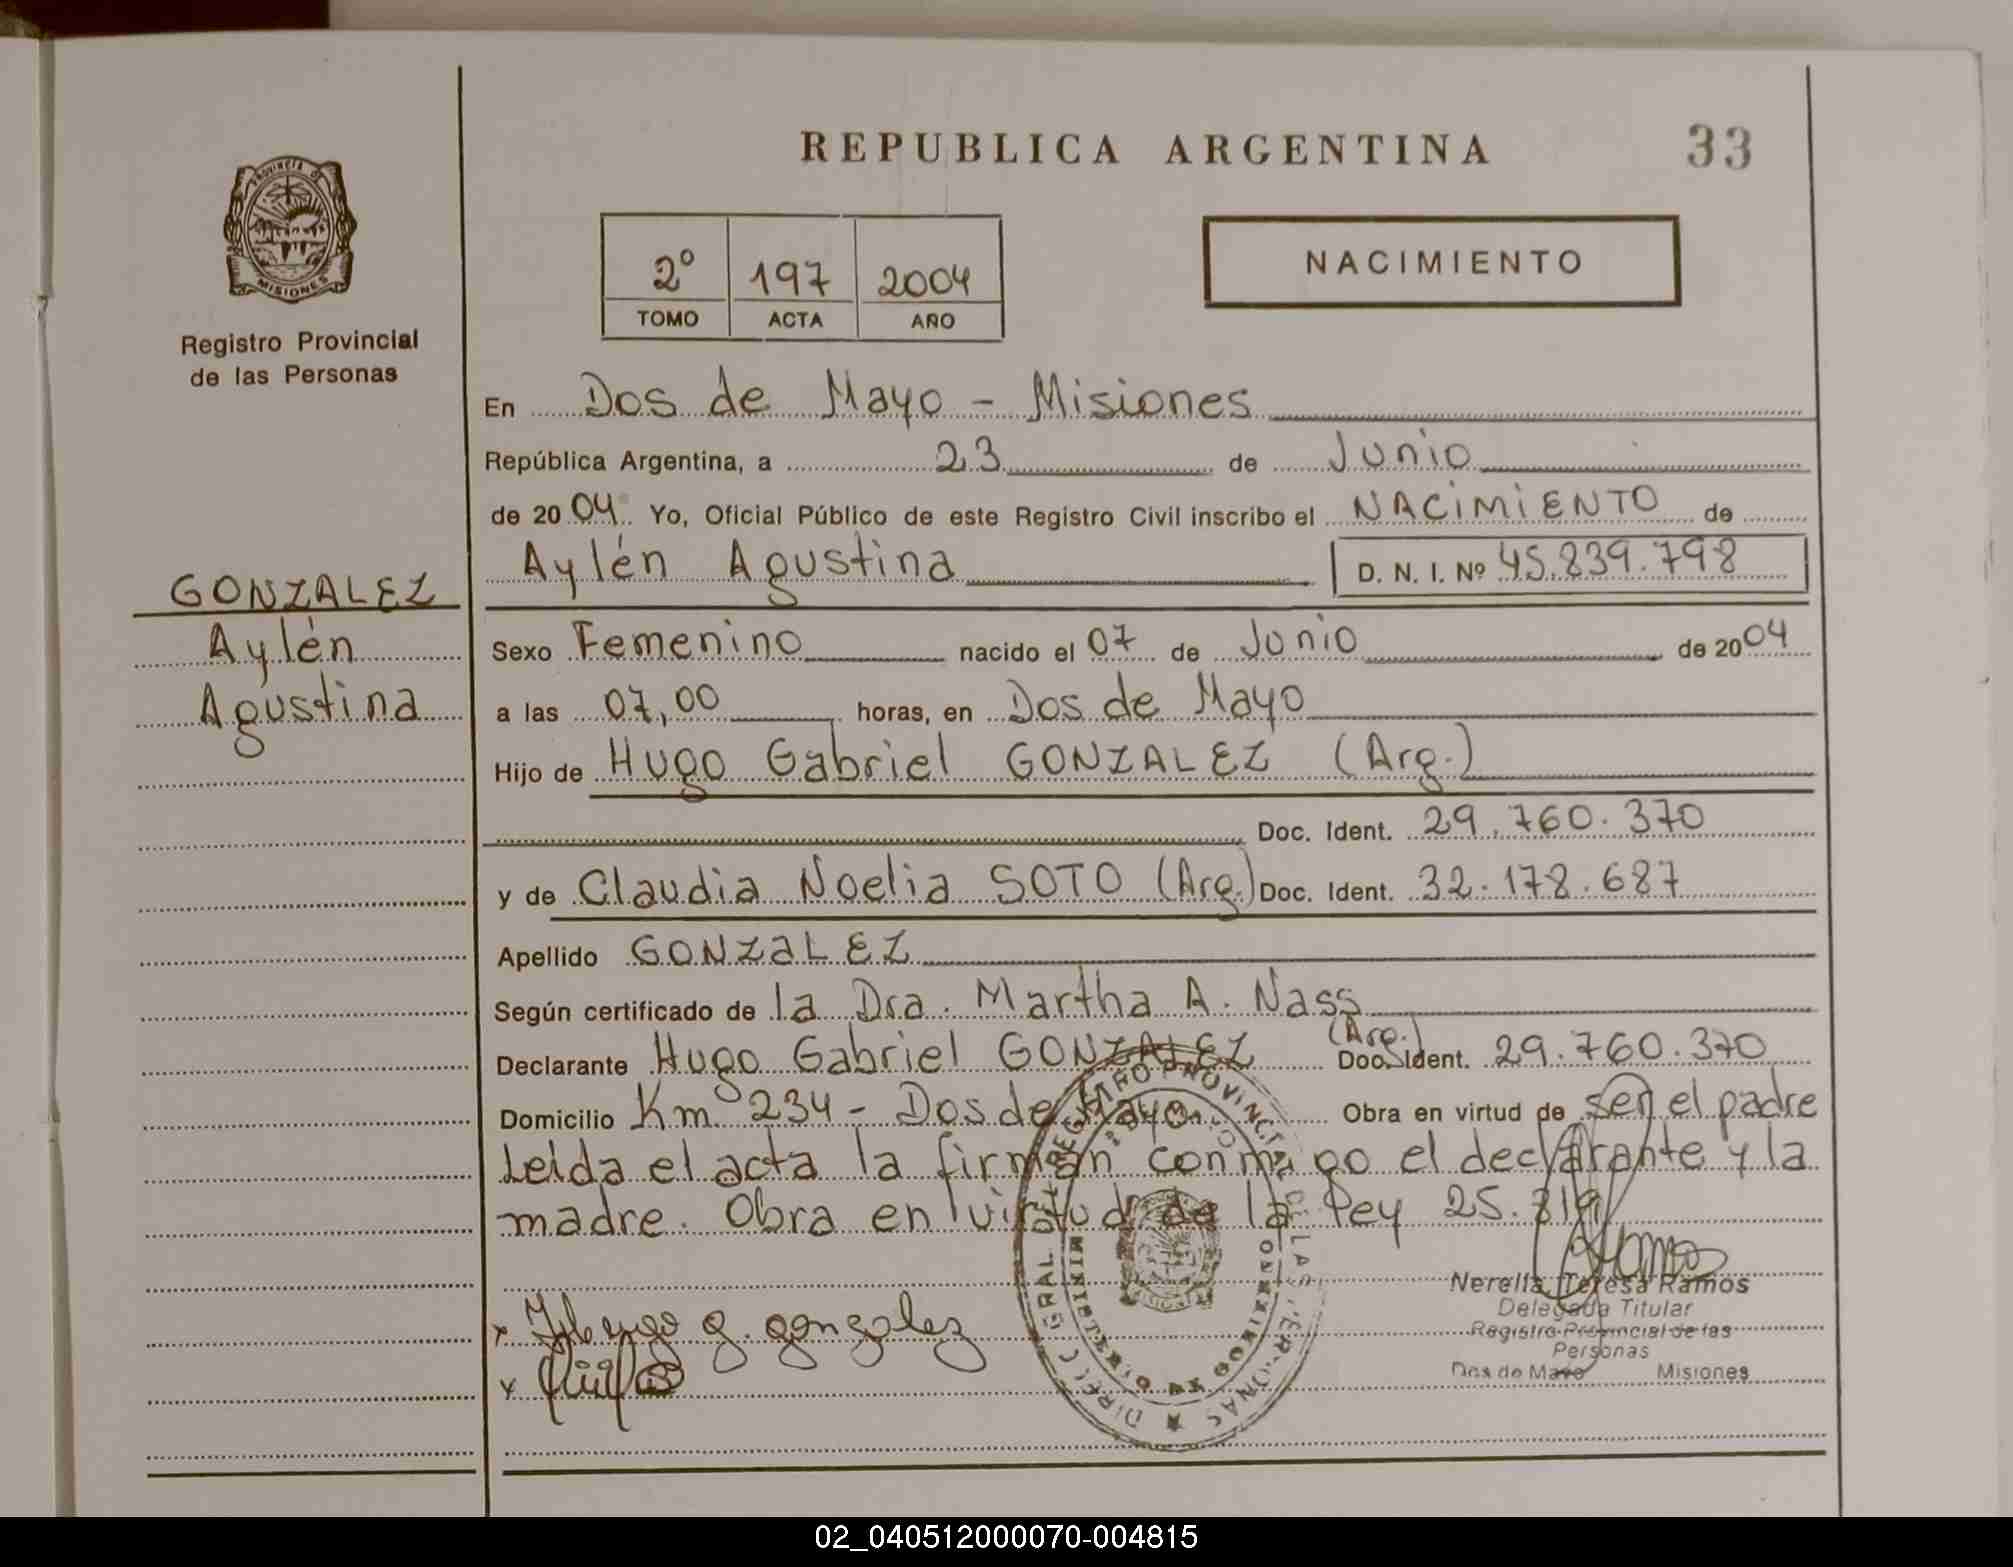 REPUBLICA ARGENTINA
33
PROVINCIA D
MISIONES
Registro Provincial
de las Personas
2º 197 2004
TOMO ACTA AÑO
NACIMIENTO
En Dos de Mayo - Misiones
República Argentina, a 23 de Junio
de 2004 Yo, Oficial Público de este Registro Civil inscribo el NACIMIENTO de
Aylén Agustina D. N. I. Nº 45.839.798
GONZALEZ
Aylén
Agustina
Sexo Femenino nacido el 07 de Junio de 2004
a las 07,00 horas, en Dos de Mayo
Hijo de Hugo Gabriel GONZALEZ (Arg.)
Doc. Ident. 29.760.370
y de Claudia Noelia SOTO (Arg.) Doc. Ident. 32.178.687
Apellido GONZALEZ
Según certificado de la Dra. Martha A. Nass
Declarante Hugo Gabriel GONZALEZ (Arg.) Doc. Ident. 29.760.370
Domicilio Km 234 - Dos de Mayo Obra en virtud de ser el padre
Leida el acta la firman conmigo el declarante y la
madre. Obra en virtud de la Ley 25.819
x Hugo g. gonzalez
x
Nerella Teresa Ramos
Delegada Titular
Registro Provincial de las
Personas
Dos de Mayo Misiones
02_040512000070-004815